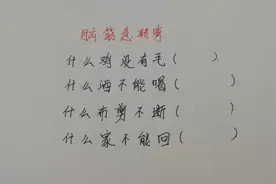 脑筋急转弯
什么鸡没有毛( )
什么酒不能喝( )
什么布剪不断( )
什么家不能回( )